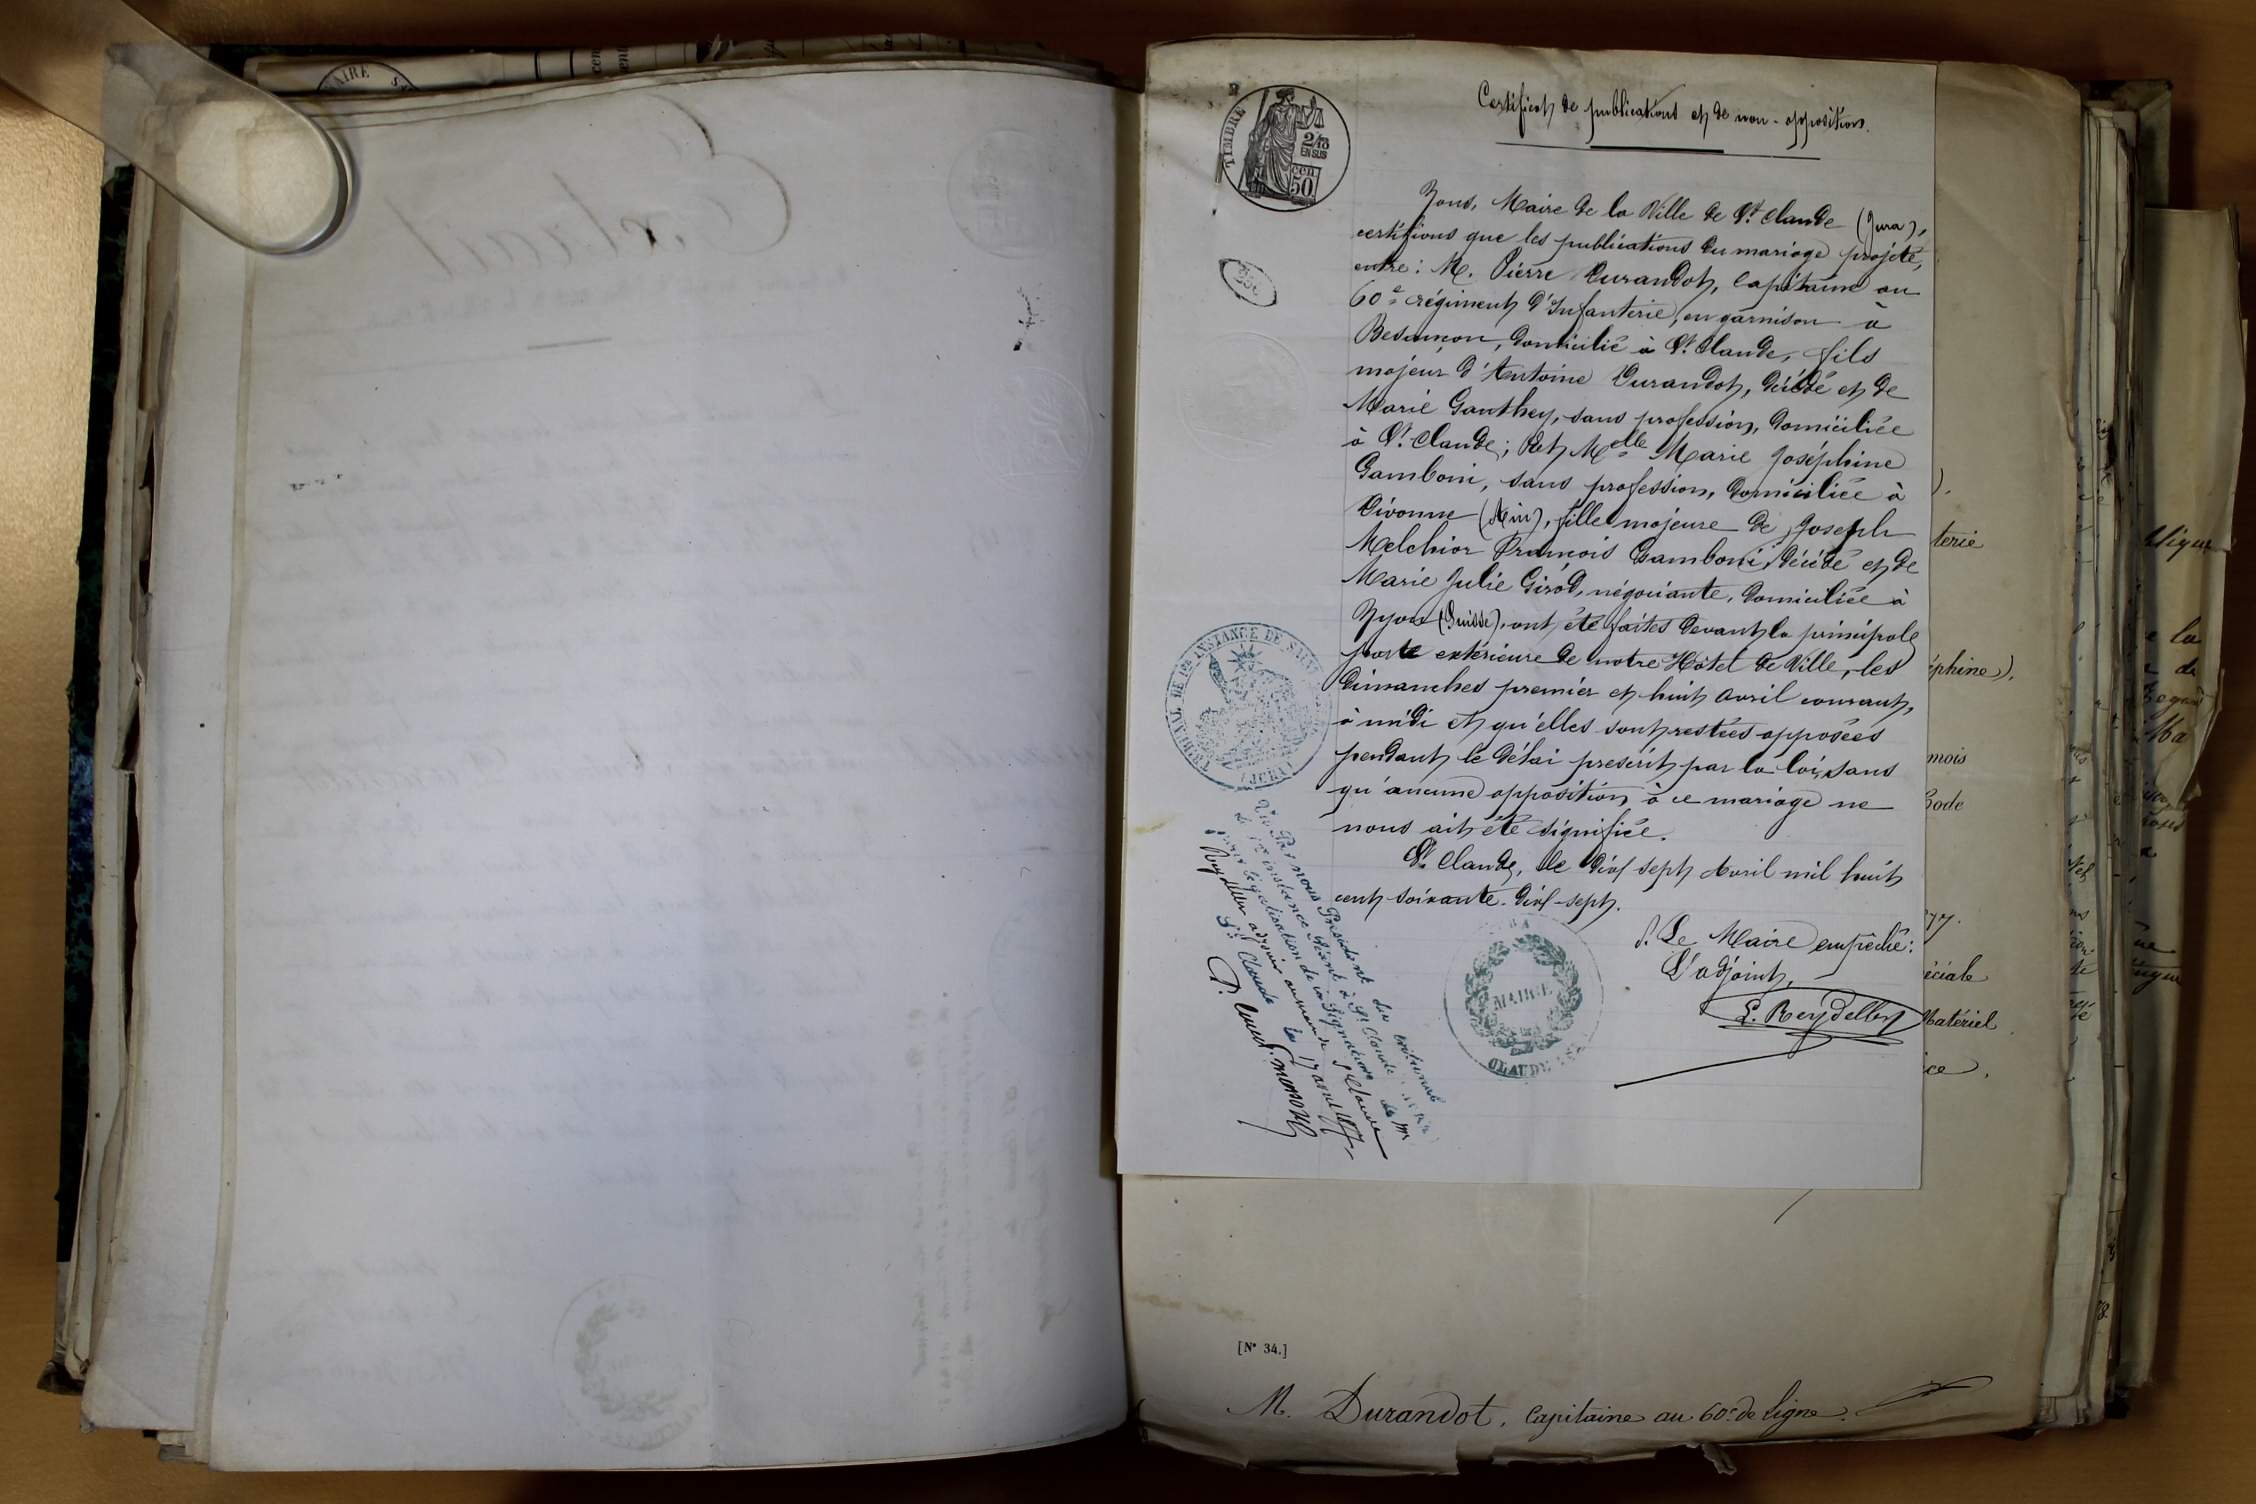 Certificat de publications et de non-opposition.
TIMBRE
2/10
EN SUS
50
Nous, Maire de la Ville de St Claude (Jura),
certifions que les publications du mariage projeté,
entre : M. Pierre Durandot, Capitaine au
60e régiment d'Infanterie, en garnison à
Besançon, domicilié à St Claude, fils
majeur d'Antoine Durandot, décédé et de
Marie Gauthey, sans profession, domiciliée
à St Claude ; Et Melle Marie Joséphine
Gamboni, sans profession, domiciliée à
Divonne (Ain), fille majeure de Joseph
Melchior François Gamboni, décédé et de
Marie Julie Girod, négociante, domiciliée à
Nyon (Suisse), ont été faites devant la principale
porte extérieure de notre Hôtel de Ville, les
Dimanches premier et huit avril courant,
à midi et qu'elles sont restées apposées
pendant le délai prescrit par la loi, sans
qu'aucune opposition à ce mariage ne
nous ait été signifiée.
St Claude, le dix sept Avril mil huit
cent soixante-dix-sept.
P. Le Maire empêché :
L'adjoint,
L. Reydellet
TRIBUNAL DE 1re INSTANCE DE SAINT
(JURA)
Vu Par nous Président du tribunal
de 1re instance séant à St Claude
pour légalisation de la Signature de Mr
Reydellet adjoint au maire de St Claude
St Claude le 17 avril 1877
MAIRIE
CLAUDE
Extrait
AIRE
terie
éphine).
mois
Code
77.
éciale
Matériel
ice,
[N° 34.]
M. Durandot, Capitaine au 60e de Ligne.